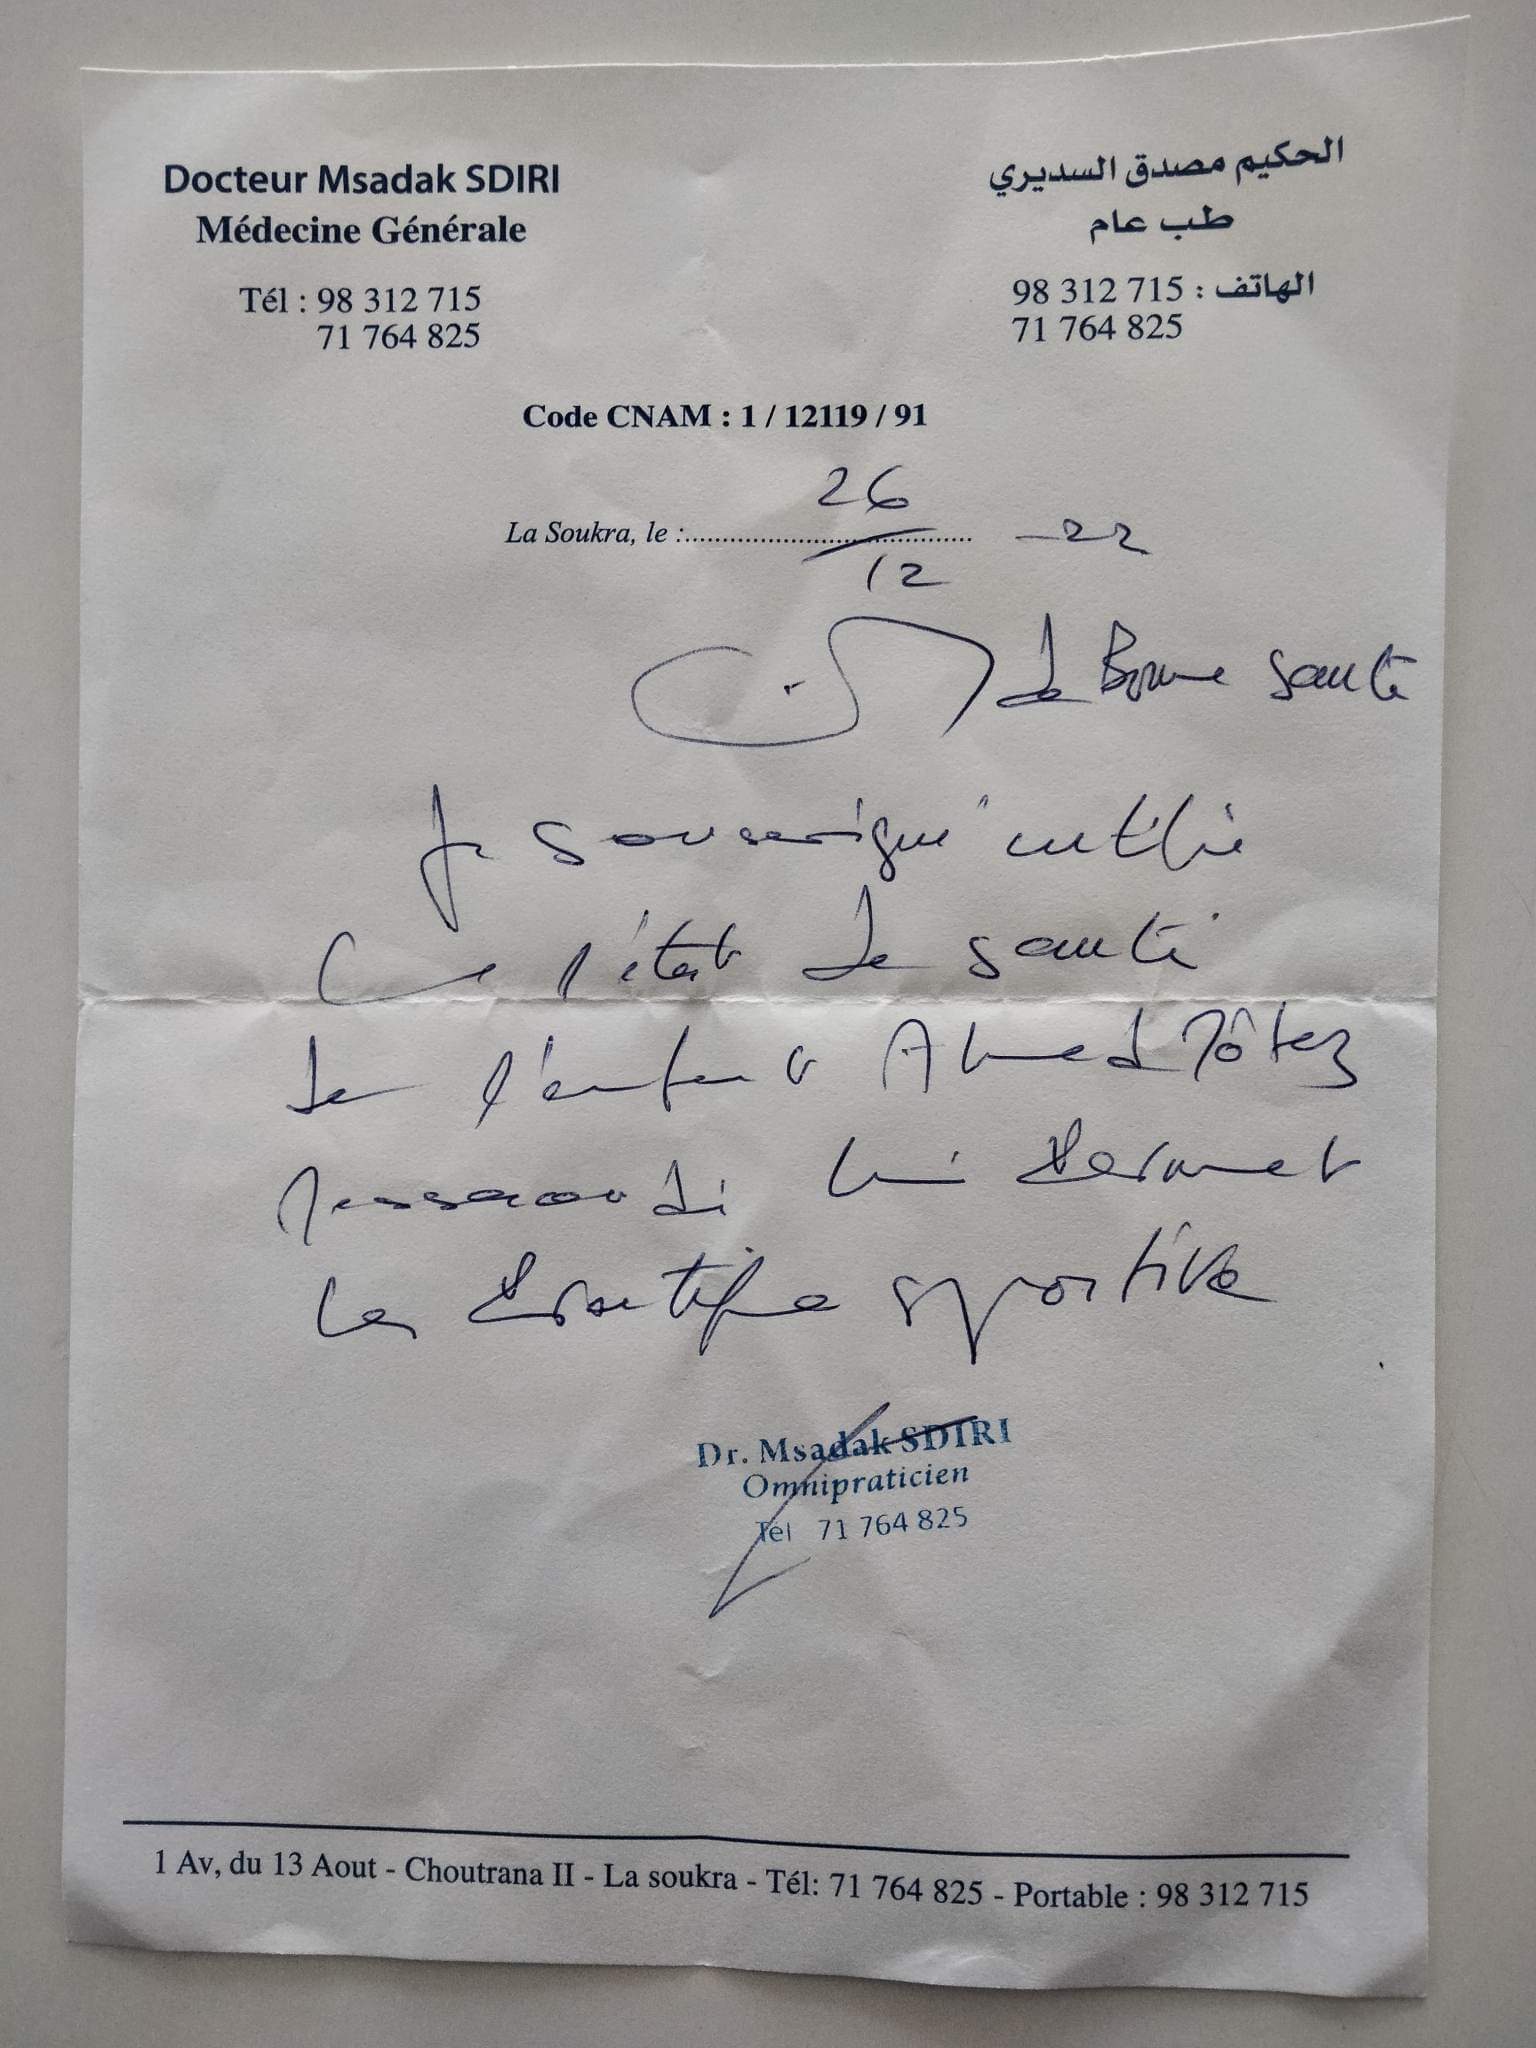 Docteur Msadak SDIRI
Médecine Générale
Tél : 98 312 715
71 764 825
الحكيم مصدق السديري
طب عام
الهاتف : 98 312 715
71 764 825
Code CNAM : 1 / 12119 / 91
La Soukra, le : 26/12 - 22
de Bonne santé
Je soussigné certifie
que l'état de santé
de l'enfant Ahmed Môtez
Messaoudi lui permet
la pratique sportive
Dr. Msadak SDIRI
Omnipraticien
Tél 71 764 825
1 Av, du 13 Aout - Choutrana II - La soukra - Tél: 71 764 825 - Portable : 98 312 715